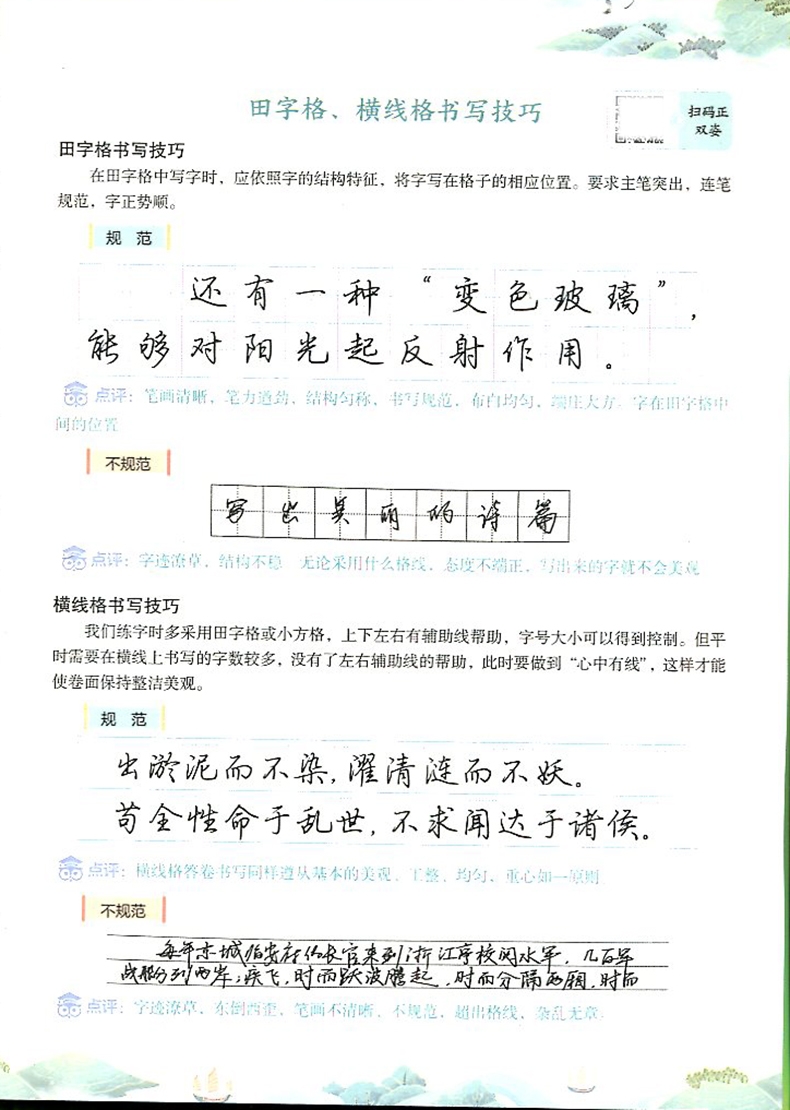 田字格、横线格书写技巧
扫码正
双姿
田字格书写技巧
在田字格中写字时，应依照字的结构特征，将字写在格子的相应位置。要求主笔突出，连笔
规范，字正势顺。
规 范
还有一种“变色玻璃”，
能够对阳光起反射作用。
点评：笔画清晰，笔力遒劲，结构匀称，书写规范，布白均匀，端庄大方，字在田字格中
间的位置
不规范
写出美丽的诗篇
点评：字迹潦草，结构不稳 无论采用什么格线，态度不端正，写出来的字就不会美观
横线格书写技巧
我们练字时多采用田字格或小方格，上下左右有辅助线帮助，字号大小可以得到控制。但平
时需要在横线上书写的字数较多，没有了左右辅助线的帮助，此时要做到“心中有线”，这样才能
使卷面保持整洁美观。
规 范
出淤泥而不染，濯清涟而不妖。
苟全性命于乱世，不求闻达于诸侯。
点评：横线格答卷书写同样遵从基本的美观、工整、均匀，重心如一原则
不规范
每年京城临安府的长官来到浙江亭校阅水军，几百军
战船分列两岸；疾飞，时而跃波腾起，时而分隔两厢，时而
点评：字迹潦草，东倒西歪，笔画不清晰、不规范，超出格线，杂乱无章。